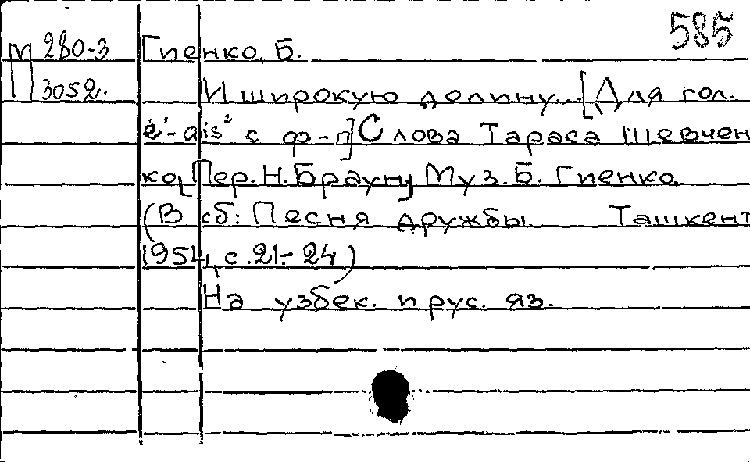 585
М 280-3 Гиенко, Б.
П 3052. И широкую долину... [Для гол.
e¹-ais² с ф-п] Слова Тараса Шевчен
ко, [Пер. Н. Браун] Муз. Б. Гиенко.
(В сб: Песня дружбы. Ташкент
1954, с. 21-24)
На узбек. и рус. яз.